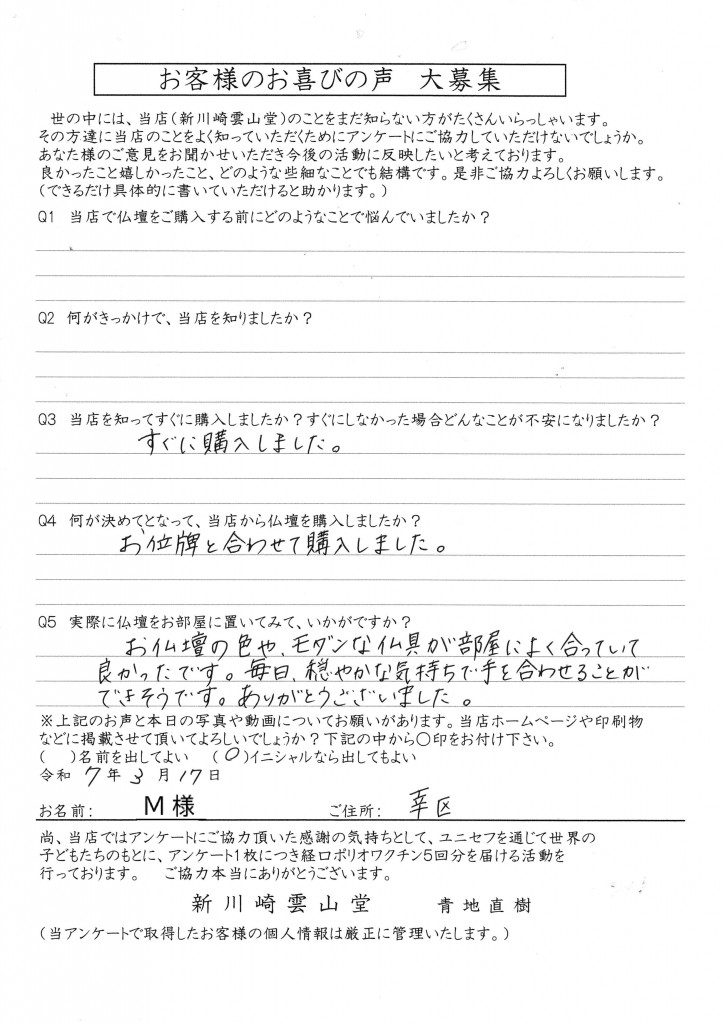 お客様のお喜びの声　大募集
世の中には、当店(新川崎雲山堂)のことをまだ知らない方がたくさんいらっしゃいます。
その方達に当店のことをよく知っていただくためにアンケートにご協力していただけないでしょうか。
あなた様のご意見をお聞かせいただき今後の活動に反映したいと考えております。
良かったこと嬉しかったこと、どのような些細なことでも結構です。是非ご協力よろしくお願いします。
(できるだけ具体的に書いていただけると助かります。)
Q1 当店で仏壇をご購入する前にどのようなことで悩んでいましたか？
Q2 何がきっかけで、当店を知りましたか？
Q3 当店を知ってすぐに購入しましたか？すぐにしなかった場合どんなことが不安になりましたか？
すぐに購入しました。
Q4 何が決めてとなって、当店から仏壇を購入しましたか？
お位牌と合わせて購入しました。
Q5 実際に仏壇をお部屋に置いてみて、いかがですか？
お仏壇の色や、モダンな仏具が部屋によく合っていて
良かったです。毎日、穏やかな気持ちで手を合わせることが
できそうです。ありがとうございました。
※上記のお声と本日の写真や動画についてお願いがあります。当店ホームページや印刷物
などに掲載させて頂いてよろしいでしょうか？下記の中から〇印をお付け下さい。
(　)名前を出してよい　(〇)イニシャルなら出してもよい
令和 7 年 3 月 17 日
お名前：　M様　ご住所：　幸区
尚、当店ではアンケートにご協力頂いた感謝の気持ちとして、ユニセフを通じて世界の
子どもたちのもとに、アンケート1枚につき経口ポリオワクチン5回分を届ける活動を
行っております。　ご協力本当にありがとうございます。
新川崎雲山堂　青地直樹
(当アンケートで取得したお客様の個人情報は厳正に管理いたします。)